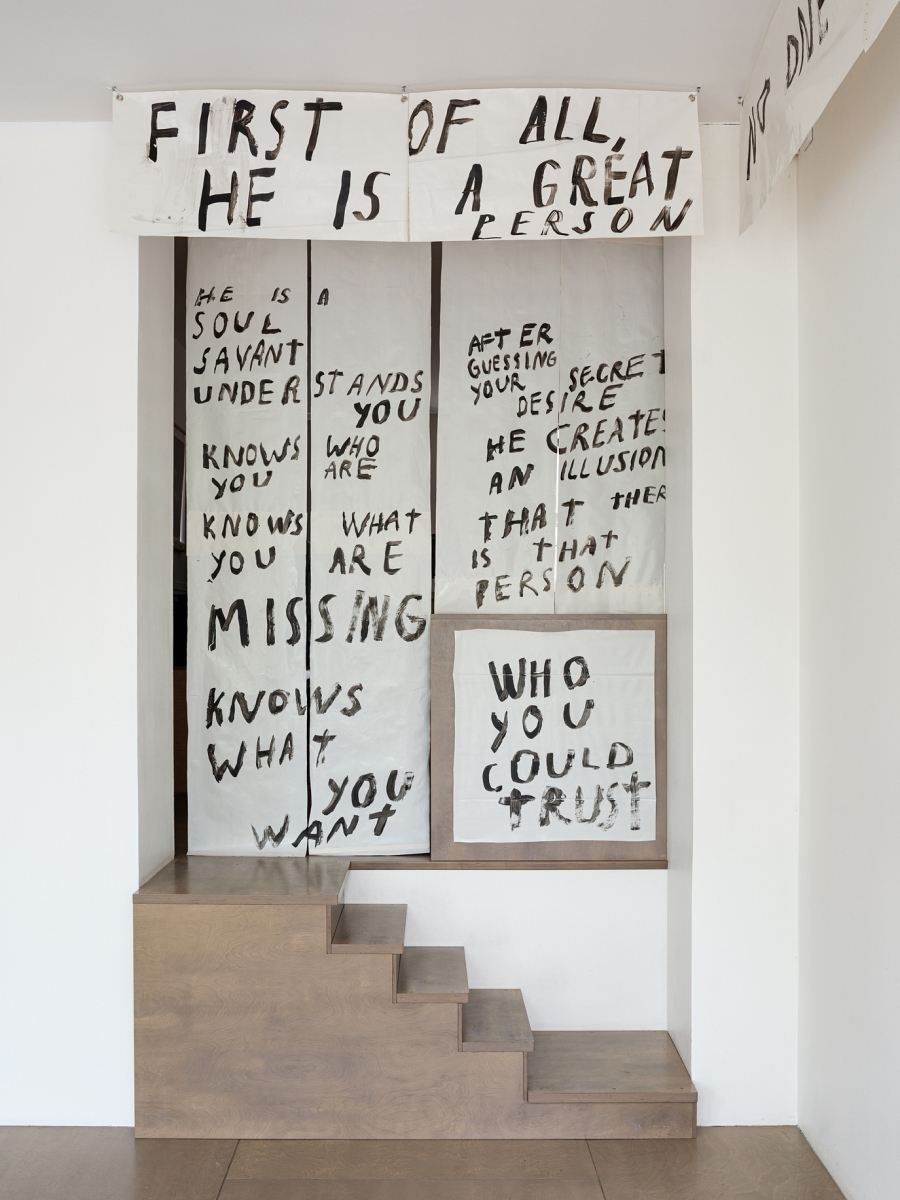 FIRST OF ALL,
HE IS A GREAT
PERSON
NO ONE
HE IS A
SOUL
SAVANT
UNDERSTANDS
YOU
KNOWS WHO
YOU ARE
KNOWS WHAT
YOU ARE
MISSING
KNOWS
WHAT
YOU
WANT
AFTER
GUESSING
YOUR SECRET
DESIRE
HE CREATES
AN ILLUSION
THAT THER
IS THAT
PERSON
WHO
YOU
COULD
TRUST